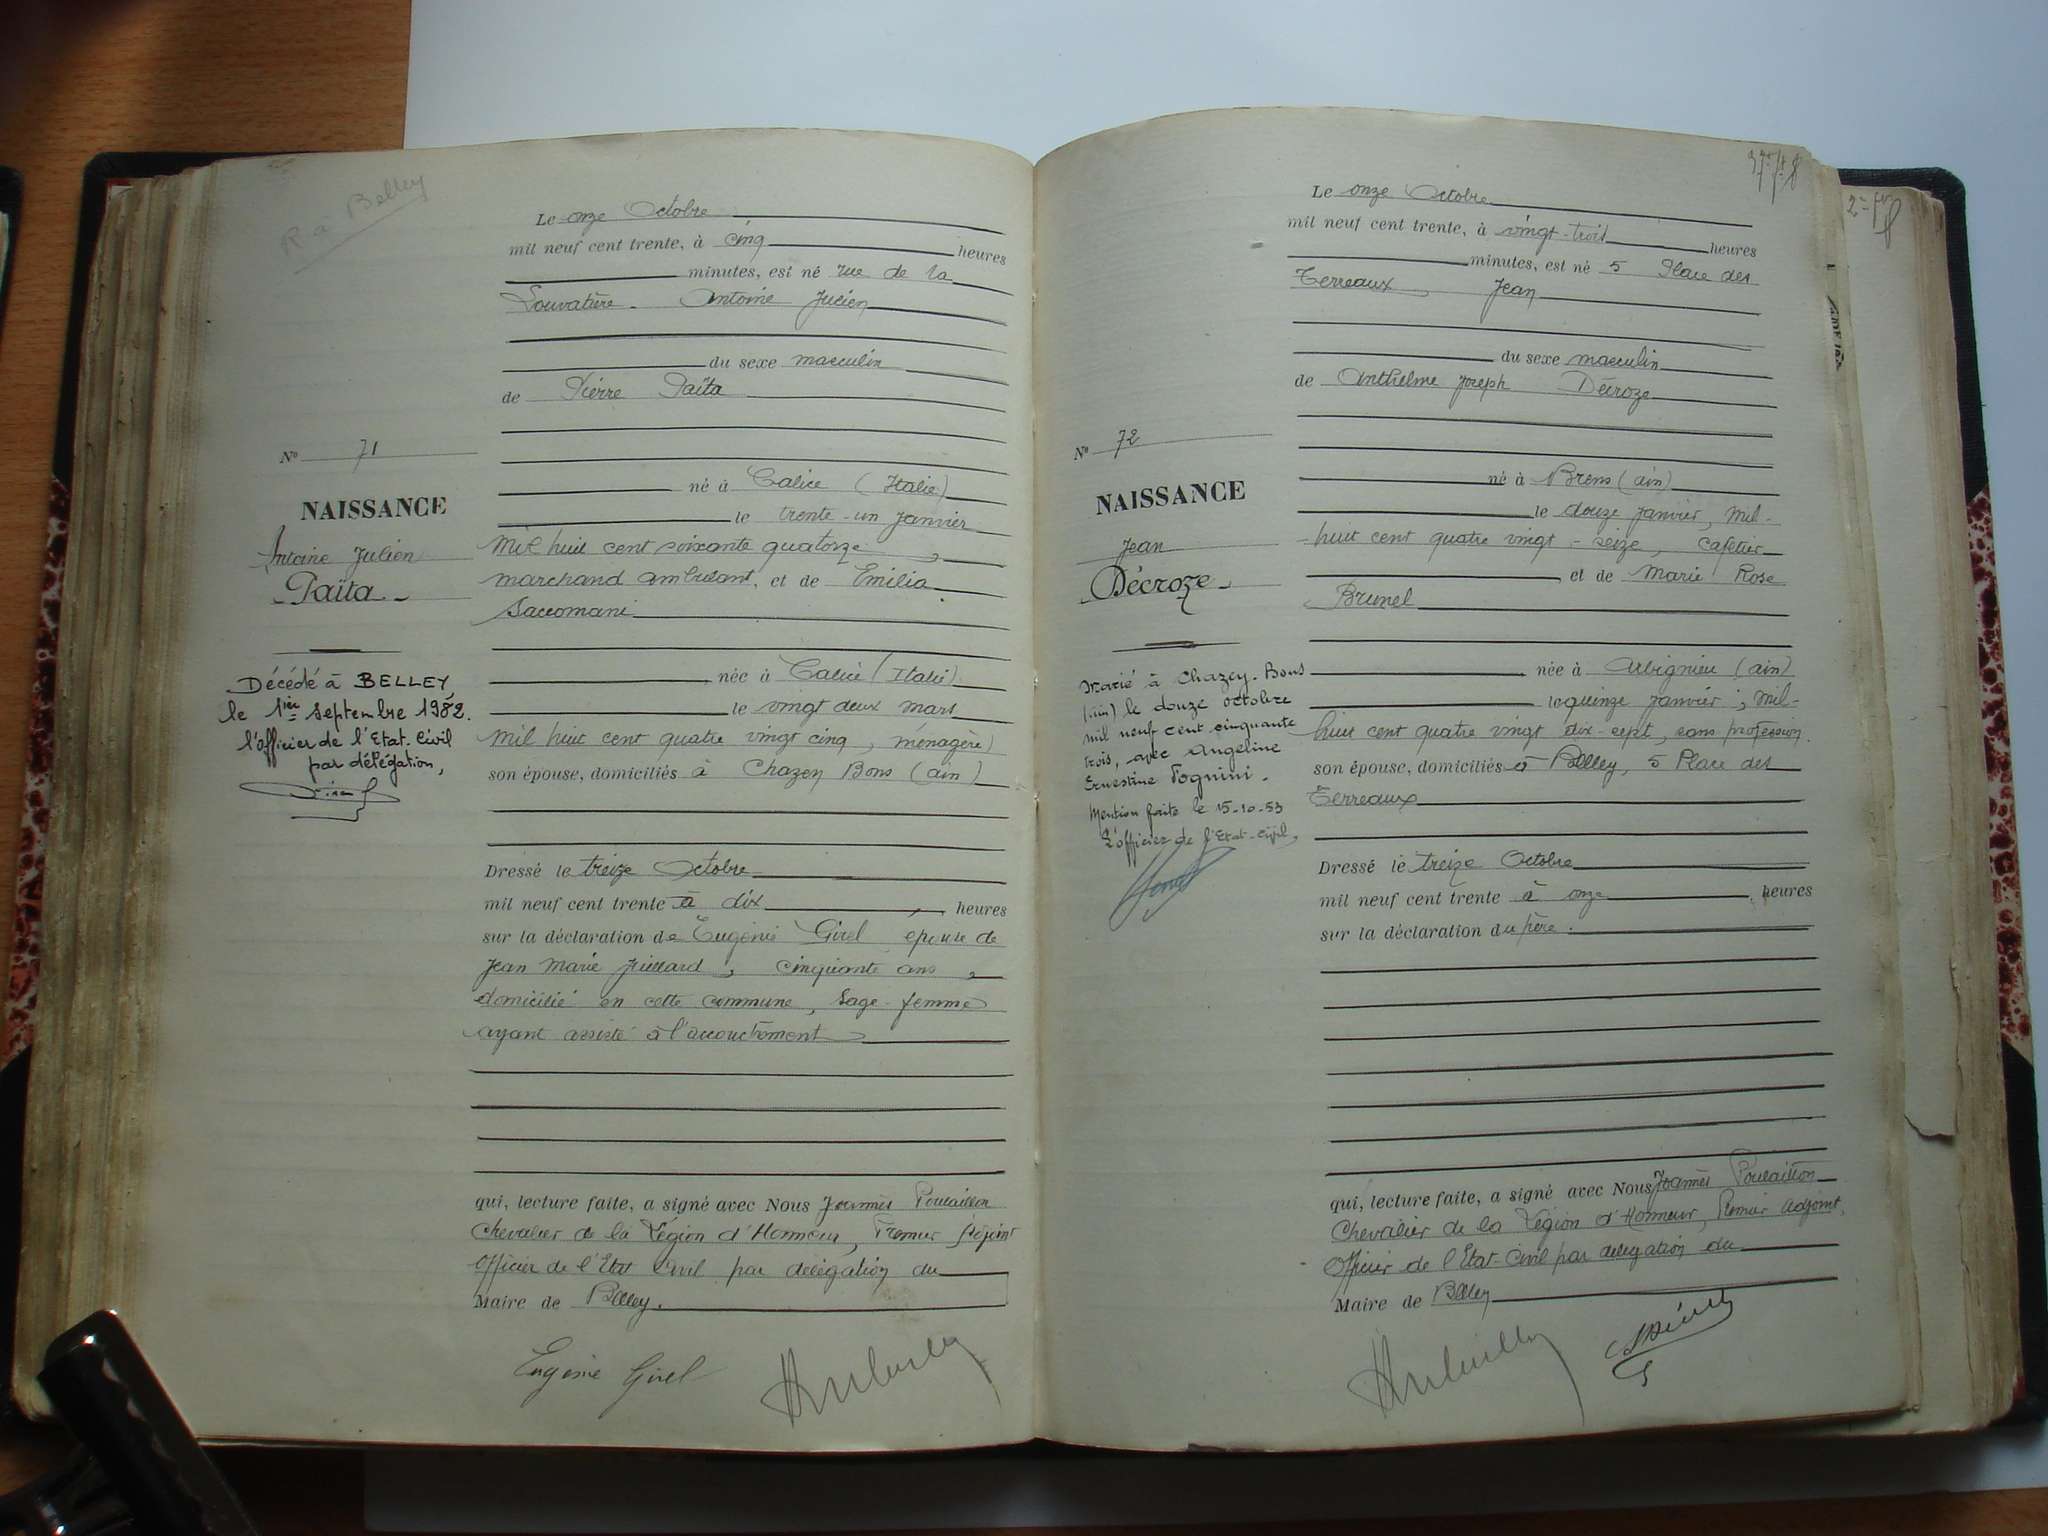 R à Belley
Le onze Octobre
mil neuf cent trente, à cinq heures
minutes, est né rue de la
Louvatière. Antoine Julien
du sexe masculin
de Pierre Païta
N° 71
NAISSANCE
Antoine Julien
Païta
né à Calice (Italie)
le trente-un janvier
mil huit cent soixante quatorze,
marchand ambulant, et de Emilia
Saccomani
née à Calice (Italie)
le vingt deux mars
mil huit cent quatre vingt cinq, ménagère
son épouse, domiciliés à Chazey Bons (ain)
Décédé à BELLEY,
le 1ier septembre 1982.
l'officier de l'Etat-Civil
par délégation,
Dressé le treize Octobre
mil neuf cent trente à dix, heures
sur la déclaration de Eugénie Girel épouse de
Jean Marie, cinquante ans,
domicilié en cette commune, sage-femme
ayant assisté à l'accouchement
qui, lecture faite, a signé avec Nous Joannès Poulaillon
Chevalier de la Légion d'Honneur, Premier Adjoint
Officier de l'Etat Civil par délégation du
Maire de Belley.
Eugénie Girel
Le onze Octobre
mil neuf cent trente, à vingt-trois heures
minutes, est né 5 Place des
Terreaux, Jean
du sexe masculin
de Anthelme Joseph Décroze
N° 72
NAISSANCE
Jean
Décroze
né à Brens (ain)
le douze janvier, mil-
huit cent quatre vingt-seize, cafetier
et de Marie Rose
Brunel
née à Arbignieu (ain)
le quinze janvier, mil-
huit cent quatre vingt dix-sept, sans profession.
son épouse, domiciliés à Belley, 5 Place des
Terreaux
Marié à Chazey-Bons
(ain) le douze octobre
mil neuf cent cinquante
trois, avec Angeline
Ernestine Tognini.
Mention faite le 15-10-53
L'officier de l'Etat-Civil,
Dressé le treize Octobre
mil neuf cent trente à onze, heures
sur la déclaration du père.
qui, lecture faite, a signé avec Nous Joannès Poulaillon
Chevalier de la Légion d'Honneur, Premier Adjoint,
Officier de l'Etat-Civil par délégation du
Maire de Belley